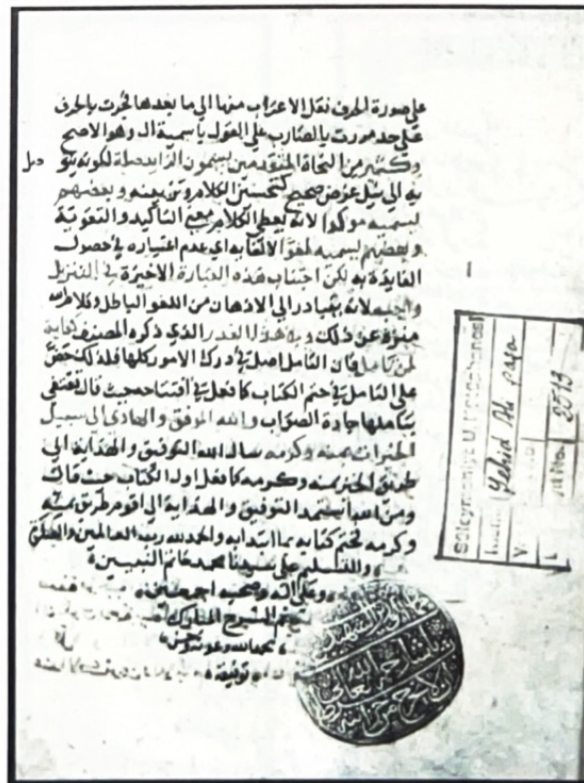 على صورة الحرف نقل الاعراب منها الي ما بعدها فجرت بالحرف
على حد مررت بالضارب علي القول باسمية ال وهو الاصح
وكثير من النحاة المتقدمين يسمون الزايد صلة لكونه يتو صل
به الى نيل غرض صحيح كتحسين الكلام وتزيينه وبعضهم
يسميه موكدا لانه يعطي الكلام معنى التاكيد والتقوية
وبعضهم يسميه لغوا لالغايه اي عدم اعتباره في حصول
الفايدة به لكن اجتناب هذه العبارة الاخيرة في التنزيل
واجب لانه يتبادر الي الاذهان من اللغو الباطل وكلام الله
منزه عن ذلك وفي هذا القدر الذي ذكره المصنف كفاية
لمن تامل فان التامل اصل في درك الامور كلها فلذلك حض
على التامل في ختم الكتاب كما فعل في افتتاحه حيث قال تقتفي
بتاملها جادة الصواب والله الموفق والهادي الى سبيل
الخيرات بمنه وكرمه سال الله التوفيق والهداية الى
طريق الخير بمنه وكرمه كما فعل اول الكتاب حيث قال
ومن الله استمد التوفيق والهداية الى اقوم طريق بمنه
وكرمه فختم كتابه بما ابتدا به والحمد لله رب العالمين والصلاة
والسلم على سيدنا محمد خاتم النبيين
وعلى اله وصحبه اجمعين
تم الشرح المبارك
بحمد الله وعونه وحسن
توفيقه
Süleymaniye U. Kütüphanesi
Şehid Ali paşa
2519